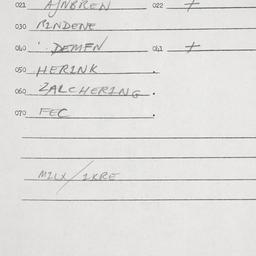 021 AJNBREN 022 +
030 MINDENE
040 DEMEN 041 +
050 HERINK .
060 ZALCHERING .
070 FEC .
MILX/IKRE